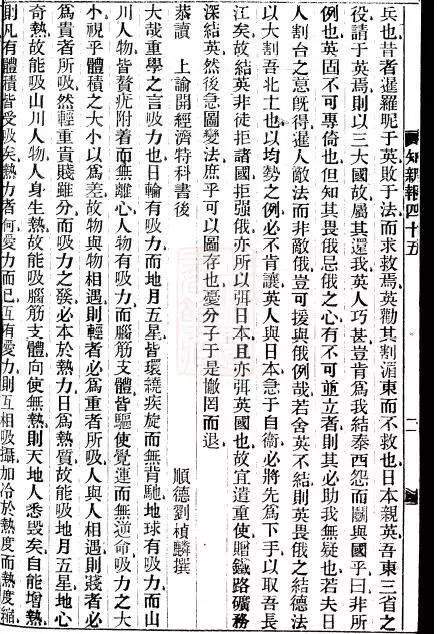 知新報四十五
二
兵也昔者暹羅昵于英敗于法而求救焉英勸其割湄東而不救也日本親英吾東三省之
役請于英焉則以三大國故屬其還我英人巧甚豈肯爲我結泰西怨而鬭與國乎曰非所
例也英固不可專倚也但知其畏俄忌俄之心有不可並立者則其必助我無疑也若夫日
人割台之意旣得暹人敵法而非敵俄豈可援與俄例哉若舍英不結則英畏俄之結德法
以大割吾北土也以均勢之例必不肯讓英人與日本急于自衞必將先爲下手以取吾長
江矣故結英非徒拒諸國拒强俄亦所以弭日本且亦弭英國也故宜遣重使贈鐵路礦務
深結英然後急圖變法庶乎可以圖存也憂分子于是撤罔而退
恭讀　上諭開經濟特科書後　順德劉楨麟撰
大哉重學之言吸力也日輪有吸力而地月五星皆環繞疾旋而無背馳地球有吸力而山
川人物皆贅疣附着而無離心人物有吸力而腦筋支體皆驅使覺運而無逆命吸力之大
小視乎體積之大小以爲差故物與物相遇則輕者必爲重者所吸人與人相遇則賤者必
爲貴者所吸然輕重貴賤雖分而吸力之發必本於熱力日爲熱質故能吸地月五星地心
奇熱故能吸山川人物人身生熱故能吸腦筋支體向使無熱則天地人悉毀矣自能增熱
則凡有體積皆受吸矣熱力者何愛力而已互有愛力則互相吸攝加冷於熱度而熱度縮